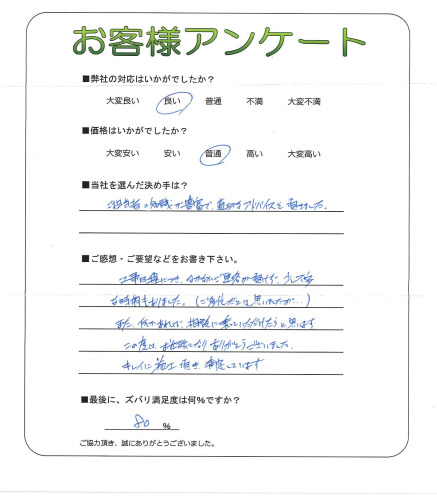 お客様アンケート
■弊社の対応はいかがでしたか?
大変良い 良い 普通 不満 大変不満
■価格はいかがでしたか?
大変安い 安い 普通 高い 大変高い
■当社を選んだ決め手は?
担当者の知識が豊富で、適切なアドバイスを頂きました。
■ご感想・ご要望などをお書き下さい。
工事日程につき、なかなかご連絡が頂けず、少し不安
な時期もありました。(ご多忙だとは思いましたが…)
また、何かあれば、相談に乗っていただけたらと思います
この度は、お世話になりありがとうございました。
キレイに施工頂き、満足しています
■最後に、ズバリ満足度は何%ですか?
80 %
ご協力頂き、誠にありがとうございました。